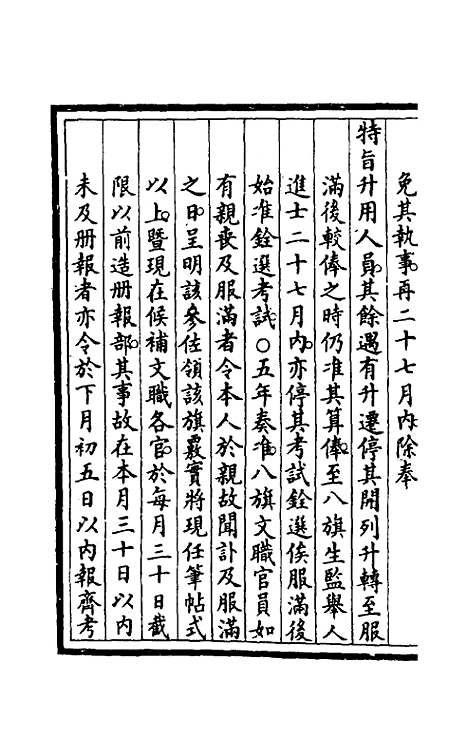 免其執事再二十七月內除奉
特旨升用人員其餘遇有升遷停其開列升轉至服
滿後較俸之時仍准其算俸至八旗生監舉人
進士二十七月內亦停其考試銓選俟服滿後
始准銓選考試○五年奏准八旗文職官員如
有親喪及服滿者令本人於親故聞訃及服滿
之日呈明該參佐領該旗覈實將現任筆帖式
以上暨現在候補文職各官於每月三十日截
限以前造册報部其事故在本月三十日以內
未及册報者亦令於下月初五日以內報齊考